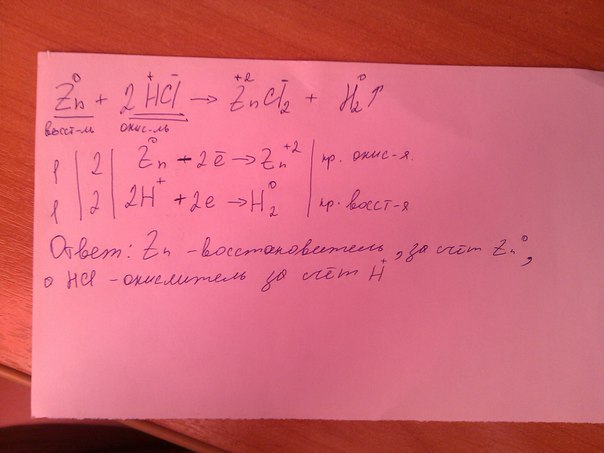 Zn⁰ + 2H⁺Cl⁻ → Zn⁺²Cl₂⁻ + H₂⁰↑
восст-ль окис-ль
1 | 2 | Zn⁰ - 2ē → Zn⁺² | пр. окис-я.
1 | 2 | 2H⁺ + 2e → H₂⁰ | пр. восст-я
Ответ: Zn - восстановитель, за счёт Zn⁰,
а HCl - окислитель за счёт H⁺